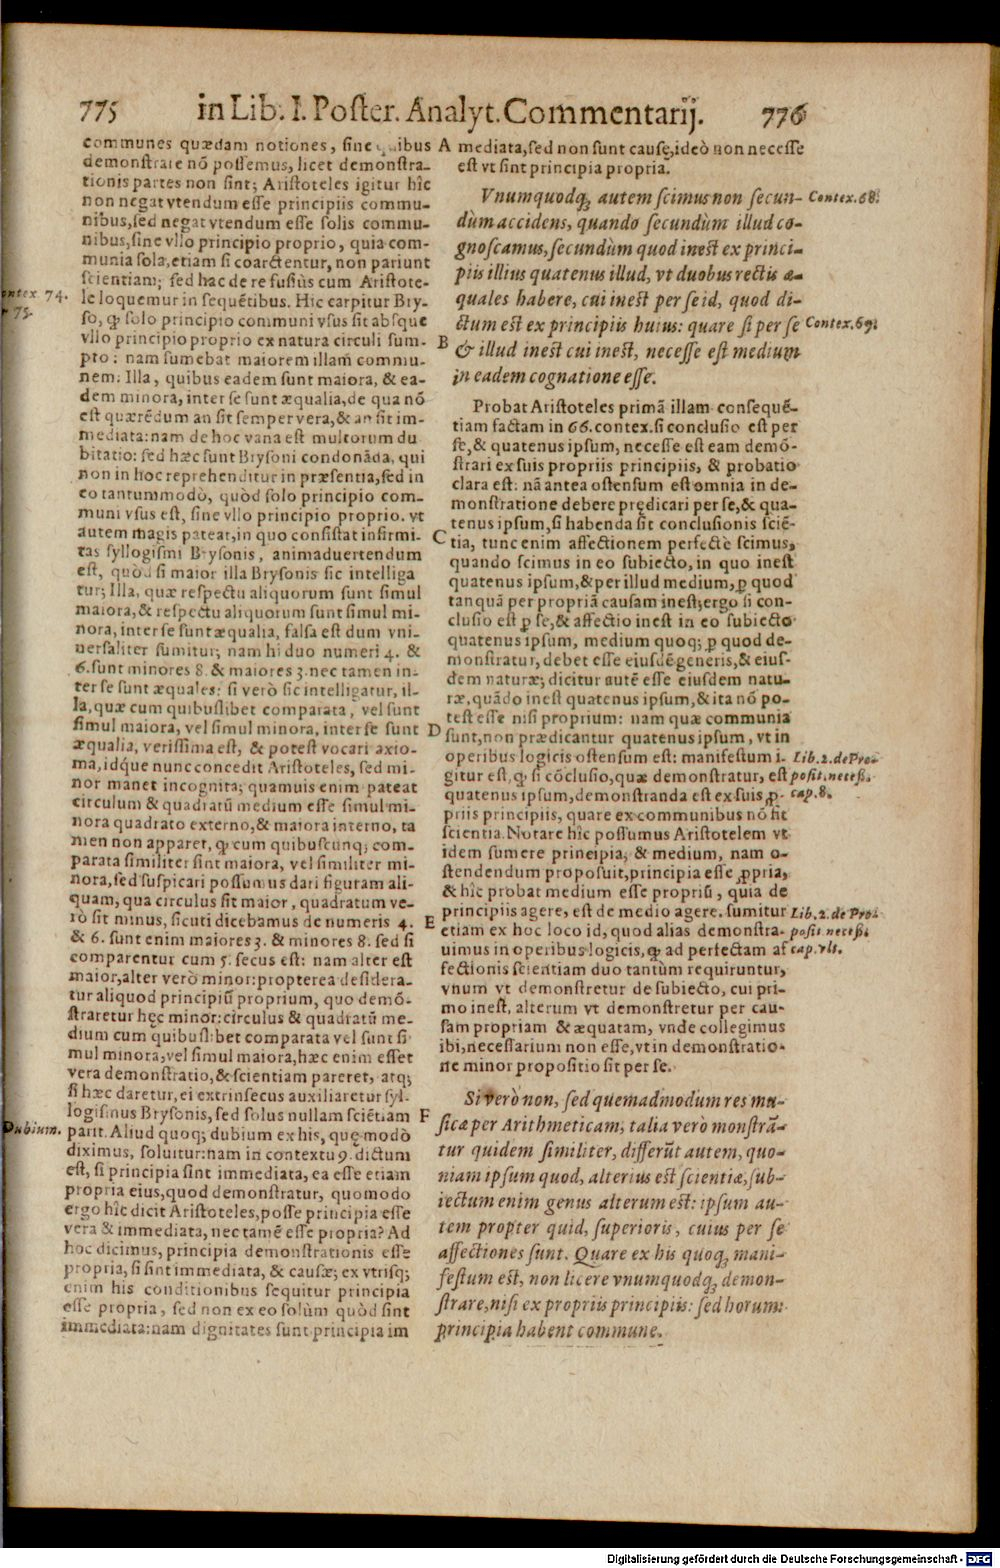 775 in Lib. I. Poster. Analyt. Commentarij. 776
communes quædam notiones, sine quibus
demonstrare nō possemus, licet demonstra-
tionis partes non sint; Aristoteles igitur hîc
non negat vtendum esse principiis commu-
nibus, sed negat vtendum esse solis commu-
nibus, sine vllo principio proprio, quia com-
munia sola, etiam si coarctentur, non pariunt
scientiam; sed hac de re fusiùs cum Aristote-
le loquemur in sequētibus. Hîc carpitur Bry-
so, ꝙ solo principio communi vsus sit absque
vllo principio proprio ex natura circuli sum-
pto: nam sumebat maiorem illam commu-
nem: Illa, quibus eadem sunt maiora, & ea-
dem minora, inter se sunt æqualia, de qua nō
est quærēdum an sit semper vera, & an sit im-
mediata: nam de hoc vana est multorum du
bitatio: sed hæc sunt Brysoni condonāda, qui
non in hoc reprehenditur in præsentia, sed in
eo tantummodò, quòd solo principio com-
muni vsus est, sine vllo principio proprio. vt
autem magis pateat, in quo consistat infirmi-
tas syllogismi Brysonis, animaduertendum
est, quòd si maior illa Brysonis sic intelliga
tur; Illa, quæ respectu aliquorum sunt simul
maiora, & respectu aliquorum sunt simul mi-
nora, inter se sunt æqualia, falsa est dum vni-
uersaliter sumitur; nam hi duo numeri 4. &
6. sunt minores 8. & maiores 3. nec tamen in-
ter se sunt æquales: si verò sic intelligatur, il-
la, quæ cum quibuslibet comparata, vel sunt
simul maiora, vel simul minora, inter se sunt
æqualia, verissima est, & potest vocari axio-
ma, idque nunc concedit Aristoteles, sed mi-
nor manet incognita; quamuis enim pateat
circulum & quadratū medium esse simul mi-
nora quadrato externo, & maiora interno, ta
men non apparet, ꝙ cum quibuscunq; com-
parata similiter sint maiora, vel similiter mi-
nora, sed suspicari possumus dari figuram ali-
quam, qua circulus sit maior, quadratum ve-
rò sit minus, sicuti dicebamus de numeris 4.
& 6. sunt enim maiores 3. & minores 8. sed si
comparentur cum 5. secus est: nam alter est
maior, alter verò minor: propterea desidera-
tur aliquod principiū proprium, quo demō-
straretur hęc minor: circulus & quadratū me-
dium cum quibuslibet comparata vel sunt si
mul minora, vel simul maiora, hæc enim esset
vera demonstratio, & scientiam pareret, atq;
si hæc daretur, ei extrinsecus auxiliaretur syl-
logismus Brysonis, sed solus nullam sciētiam
parit. Aliud quoq; dubium ex his, quę modò
diximus, soluitur: nam in contextu 9. dictum
est, si principia sint immediata, ea esse etiam
propria eius, quod demonstratur, quomodo
ergo hîc dicit Aristoteles, posse principia esse
vera & immediata, nec tamē esse propria? Ad
hoc dicimus, principia demonstrationis esse
propria, si sint immediata, & causæ; ex vtrisq;
enim his conditionibus sequitur principia
esse propria, sed non ex eo solùm quòd sint
immediata: nam dignitates sunt principia im
ontex 74.
75.
Dubium.
A
B
C
D
E
F
mediata, sed non sunt causę, ideò non necesse
est vt sint principia propria.
Vnumquodq; autem scimus non secun-
dùm accidens, quando secundùm illud co-
gnoscamus, secundùm quod inest ex princi-
piis illius quatenus illud, vt duobus rectis æ-
quales habere, cui inest per se id, quod di-
ctum est ex principiis huius: quare si per se
& illud inest cui inest, necesse est medium
in eadem cognatione esse.
Probat Aristoteles primā illam consequē-
tiam factam in 66. contex. si conclusio est per
se, & quatenus ipsum, necesse est eam demō-
strari ex suis propriis principiis, & probatio
clara est: nā antea ostensum est omnia in de-
monstratione debere prędicari per se, & qua-
tenus ipsum, si habenda sit conclusionis sciē-
tia, tunc enim affectionem perfectè scimus,
quando scimus in eo subiecto, in quo inest
quatenus ipsum, & per illud medium, ꝑ quod
tanquā per propriā causam inest; ergo si con-
clusio est ꝑ se, & affectio inest in eo subiecto
quatenus ipsum, medium quoq; ꝑ quod de-
monstratur, debet esse eiusdē generis, & eius-
dem naturæ; dicitur autē esse eiusdem natu-
ræ, quādo inest quatenus ipsum, & ita nō po-
test esse nisi proprium: nam quæ communia
sunt, non prædicantur quatenus ipsum, vt in
operibus logicis ostensum est: manifestum i-
gitur est, ꝙ si cōclusio, quæ demonstratur, est
quatenus ipsum, demonstranda est ex suis ꝓ-
priis principiis, quare ex communibus nō fit
scientia. Notare hîc possumus Aristotelem vt
idem sumere principia, & medium, nam o-
stendendum proposuit, principia esse ꝓpria,
& hîc probat medium esse propriū, quia de
principiis agere, est de medio agere. sumitur
etiam ex hoc loco id, quod alias demonstra-
uimus in operibus logicis, ꝙ ad perfectam af
fectionis scientiam duo tantùm requiruntur,
vnum vt demonstretur de subiecto, cui pri-
mo inest, alterum vt demonstretur per cau-
sam propriam & æquatam, vnde collegimus
ibi, necessarium non esse, vt in demonstratio-
ne minor propositio sit per se.
Si verò non, sed quemadmodum res mu-
sicæ per Arithmeticam; talia verò monstrā-
tur quidem similiter, differūt autem, quo-
niam ipsum quod, alterius est scientiæ, sub-
iectum enim genus alterum est: ipsum au-
tem propter quid, superioris, cuius per se
affectiones sunt. Quare ex his quoq; mani-
festum est, non licere vnumquodq; demon-
strare, nisi ex propriis principiis: sed horum
principia habent commune.
Contex. 68.
Contex. 69.
Lib. 2. de Pro-
posit. necess.
cap. 8.
Lib. 2. de Pro-
posit. necess.
cap. vlt.
Digitalisierung gefördert durch die Deutsche Forschungsgemeinschaft - DFG